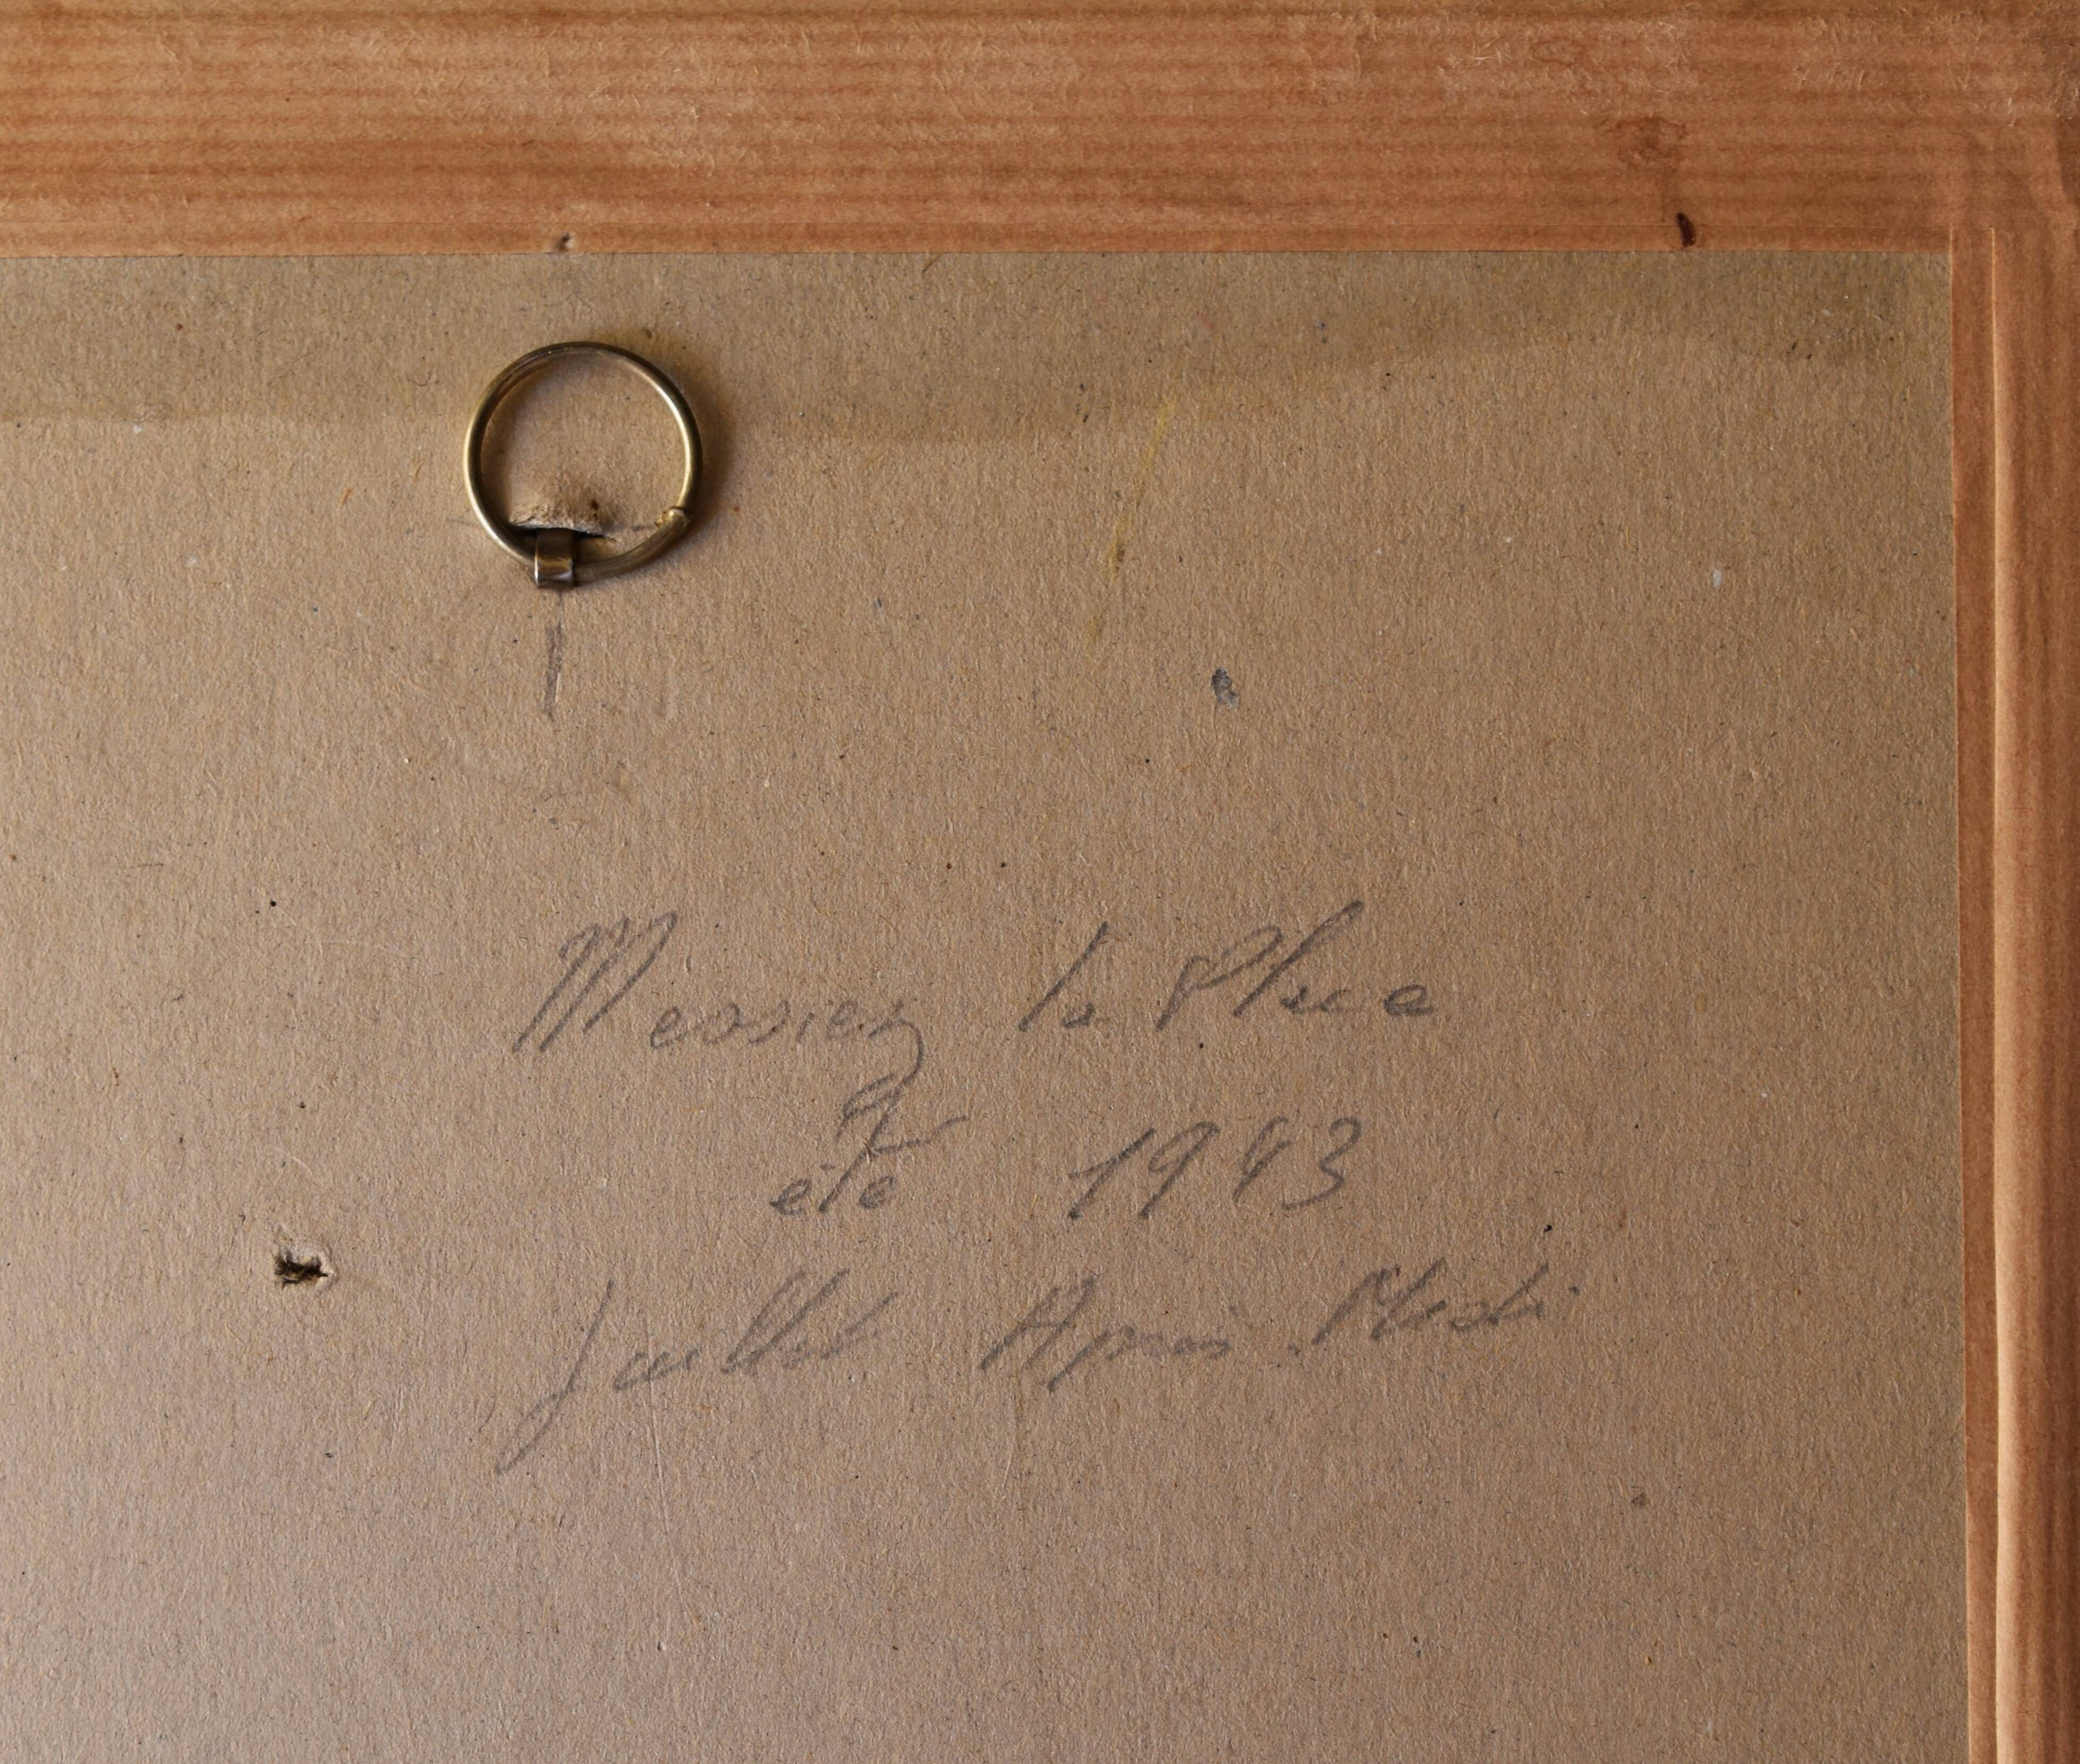 Messiez la Place
été 1943
Juillet Après Midi